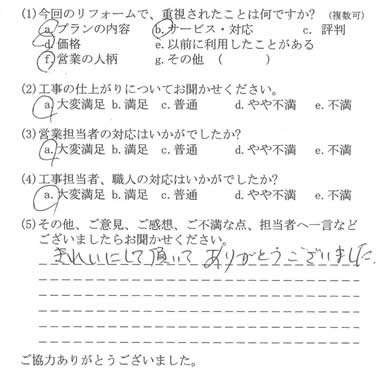 (1)今回のリフォームで、重視されたことは何ですか? (複数可)
a.プランの内容 b.サービス・対応 c. 評判
d.価格 e.以前に利用したことがある
f.営業の人柄 g.その他 (　　　)
(2)工事の仕上がりについてお聞かせください。
a.大変満足 b.満足 c.普通 d.やや不満 e.不満
(3)営業担当者の対応はいかがでしたか?
a.大変満足 b.満足 c.普通 d.やや不満 e.不満
(4)工事担当者、職人の対応はいかがでしたか?
a.大変満足 b.満足 c.普通 d.やや不満 e.不満
(5)その他、ご意見、ご感想、ご不満な点、担当者へ一言など
ございましたらお聞かせください。
きれいにして頂いて ありがとうございました.
ご協力ありがとうございました。